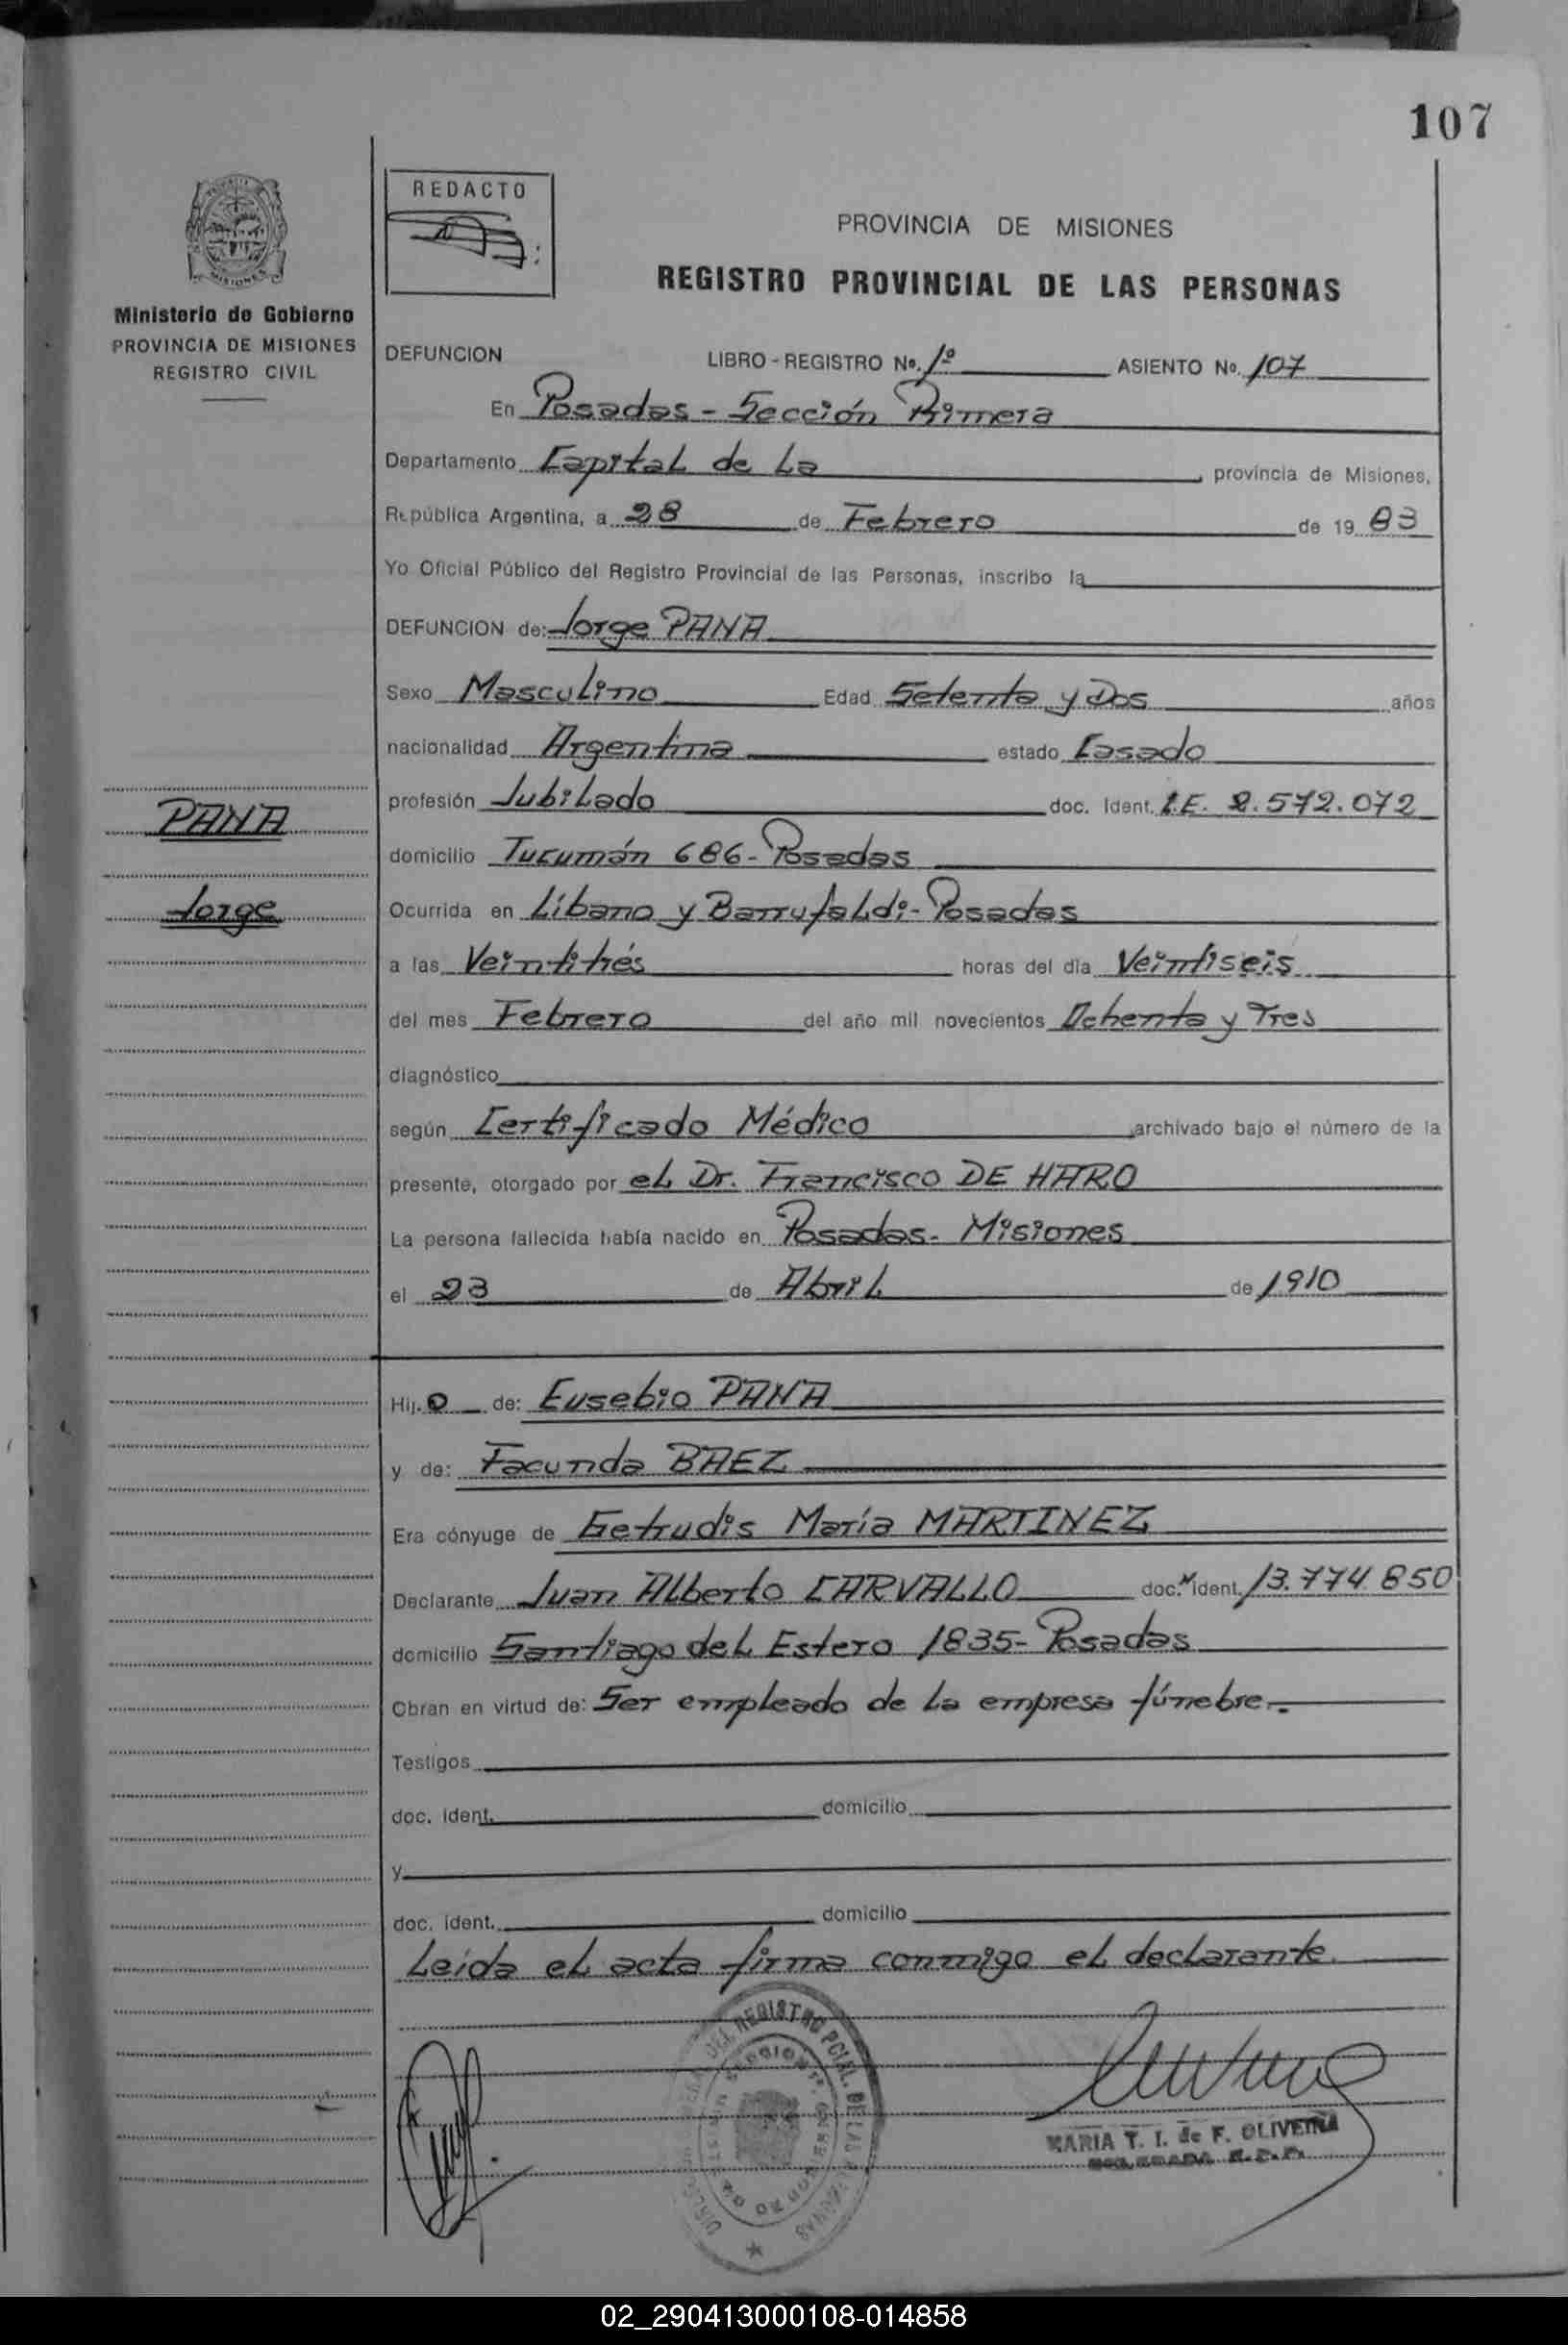 107
REDACTO
PROVINCIA DE MISIONES
REGISTRO PROVINCIAL DE LAS PERSONAS
MISIONES
Ministerio de Gobierno
PROVINCIA DE MISIONES
REGISTRO CIVIL
DEFUNCION LIBRO - REGISTRO No. 1º ASIENTO No. 107
En Posadas - Sección Primera
Departamento Capital de La, provincia de Misiones,
República Argentina, a 28 de Febrero de 19 83
Yo Oficial Público del Registro Provincial de las Personas, inscribo la
DEFUNCION de: Jorge PANA
Sexo Masculino Edad Setenta y Dos años
nacionalidad Argentina estado Casado
profesión Jubilado doc. ident. L.E. 2.572.072
domicilio Tucumán 686 - Posadas
Ocurrida en Líbano y Barrufaldi - Posadas
a las Veintitrés horas del día Veintiseis
del mes Febrero del año mil novecientos Ochenta y Tres
diagnóstico
según Certificado Médico archivado bajo el número de la
presente, otorgado por el Dr. Francisco DE HARO
La persona fallecida había nacido en Posadas - Misiones
el 23 de Abril de 1910
PANA
Jorge
Hij. o de: Eusebio PANA
y de: Facunda BAEZ
Era cónyuge de Getrudis María MARTINEZ
Declarante Juan Alberto CARVALLO doc. ident. 13.774.850
domicilio Santiago del Estero 1835 - Posadas
Obran en virtud de: Ser empleado de la empresa fúnebre.
Testigos
doc. ident. domicilio
y
doc. ident. domicilio
Leída el acta firma conmigo el declarante.
DEL REGISTRO PCIAL. DE LAS PERSONAS
MARIA T. I. de F. OLIVEIRA
02_290413000108-014858